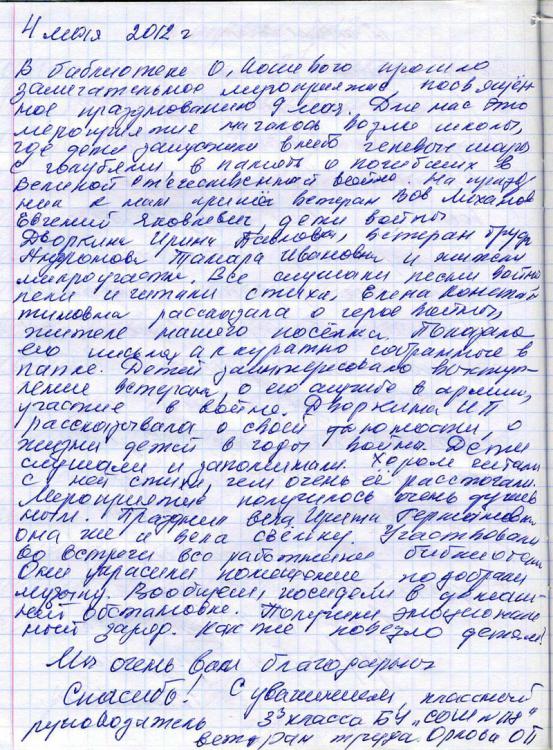 4 мая 2012 г
В библиотеке О. Кошевого прошло
замечательное мероприятие, посвящён-
ное празднованию 9 мая. Для нас это
мероприятие началось возле школы,
где дети запустили в небо гелевые шары
с голубями в память о погибших в
Великой отечественной войне. На празд-
ник к нам пришёл ветеран Вов
Евгений Яковлевич, дети войны
Дворкина Ирина Павловна, ветеран труда
Андронова Тамара Ивановна и жители
микроучастка. Все слушали песни войны
пели и читали стихи, Елена Констан
тиновна рассказала о герое войны,
жителе нашего посёлка. Показала
его письма, аккуратно собранные в
папке. Детей заинтересовало выступ-
ление ветерана, о его службе в армии,
участие в войне. Дворкина ИП
рассказывала о своей юности, о
жизни детей в годы войны. Дети
слушали и запоминали. Хором читали
с ней стихи, чем очень её растрогали.
Мероприятие получилось очень душев
ным. Праздник вела Ирина Германовна
она же и вела съёмку. Участвовали
во встрече все работники библиотеки
Они украсили помещение, подобрали
музыку. Вообщем, посидели в домаш-
ней обстановке. Получили эмоциональ
ный заряд. Как же повезло детям!
Мы очень вам благодарны
Спасибо! С уважением, классный
руководитель 3 класса БУ "СОШ
ветеран труда Орлова ОП